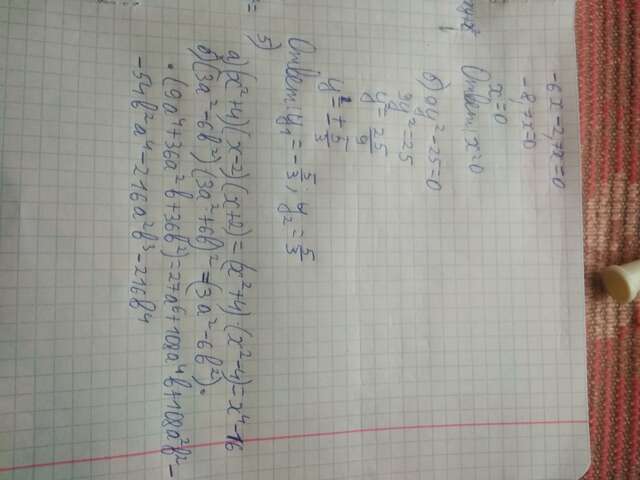 -6x-2+x=0
-8+x=0
x=0
Ответ: x=0
б) 9y²-25=0
9y²=25
y²=25/9
y=±5/3
Ответ: y₁=-5/3; y₂=5/3
5)
а) (x²+4)(x-2)(x+2)=(x²+4)(x²-4)=x⁴-16
б) (3a²-6b²)(3a²+6b)²=(3a²-6b²)·
·(9a⁴+36a²b+36b²)=27a⁶+108a⁴b+108a²b²-
-54b²a⁴-216a²b³-216b⁴